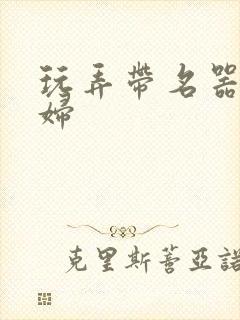 玩弄帶名器
婦
克里斯蒼亞諾